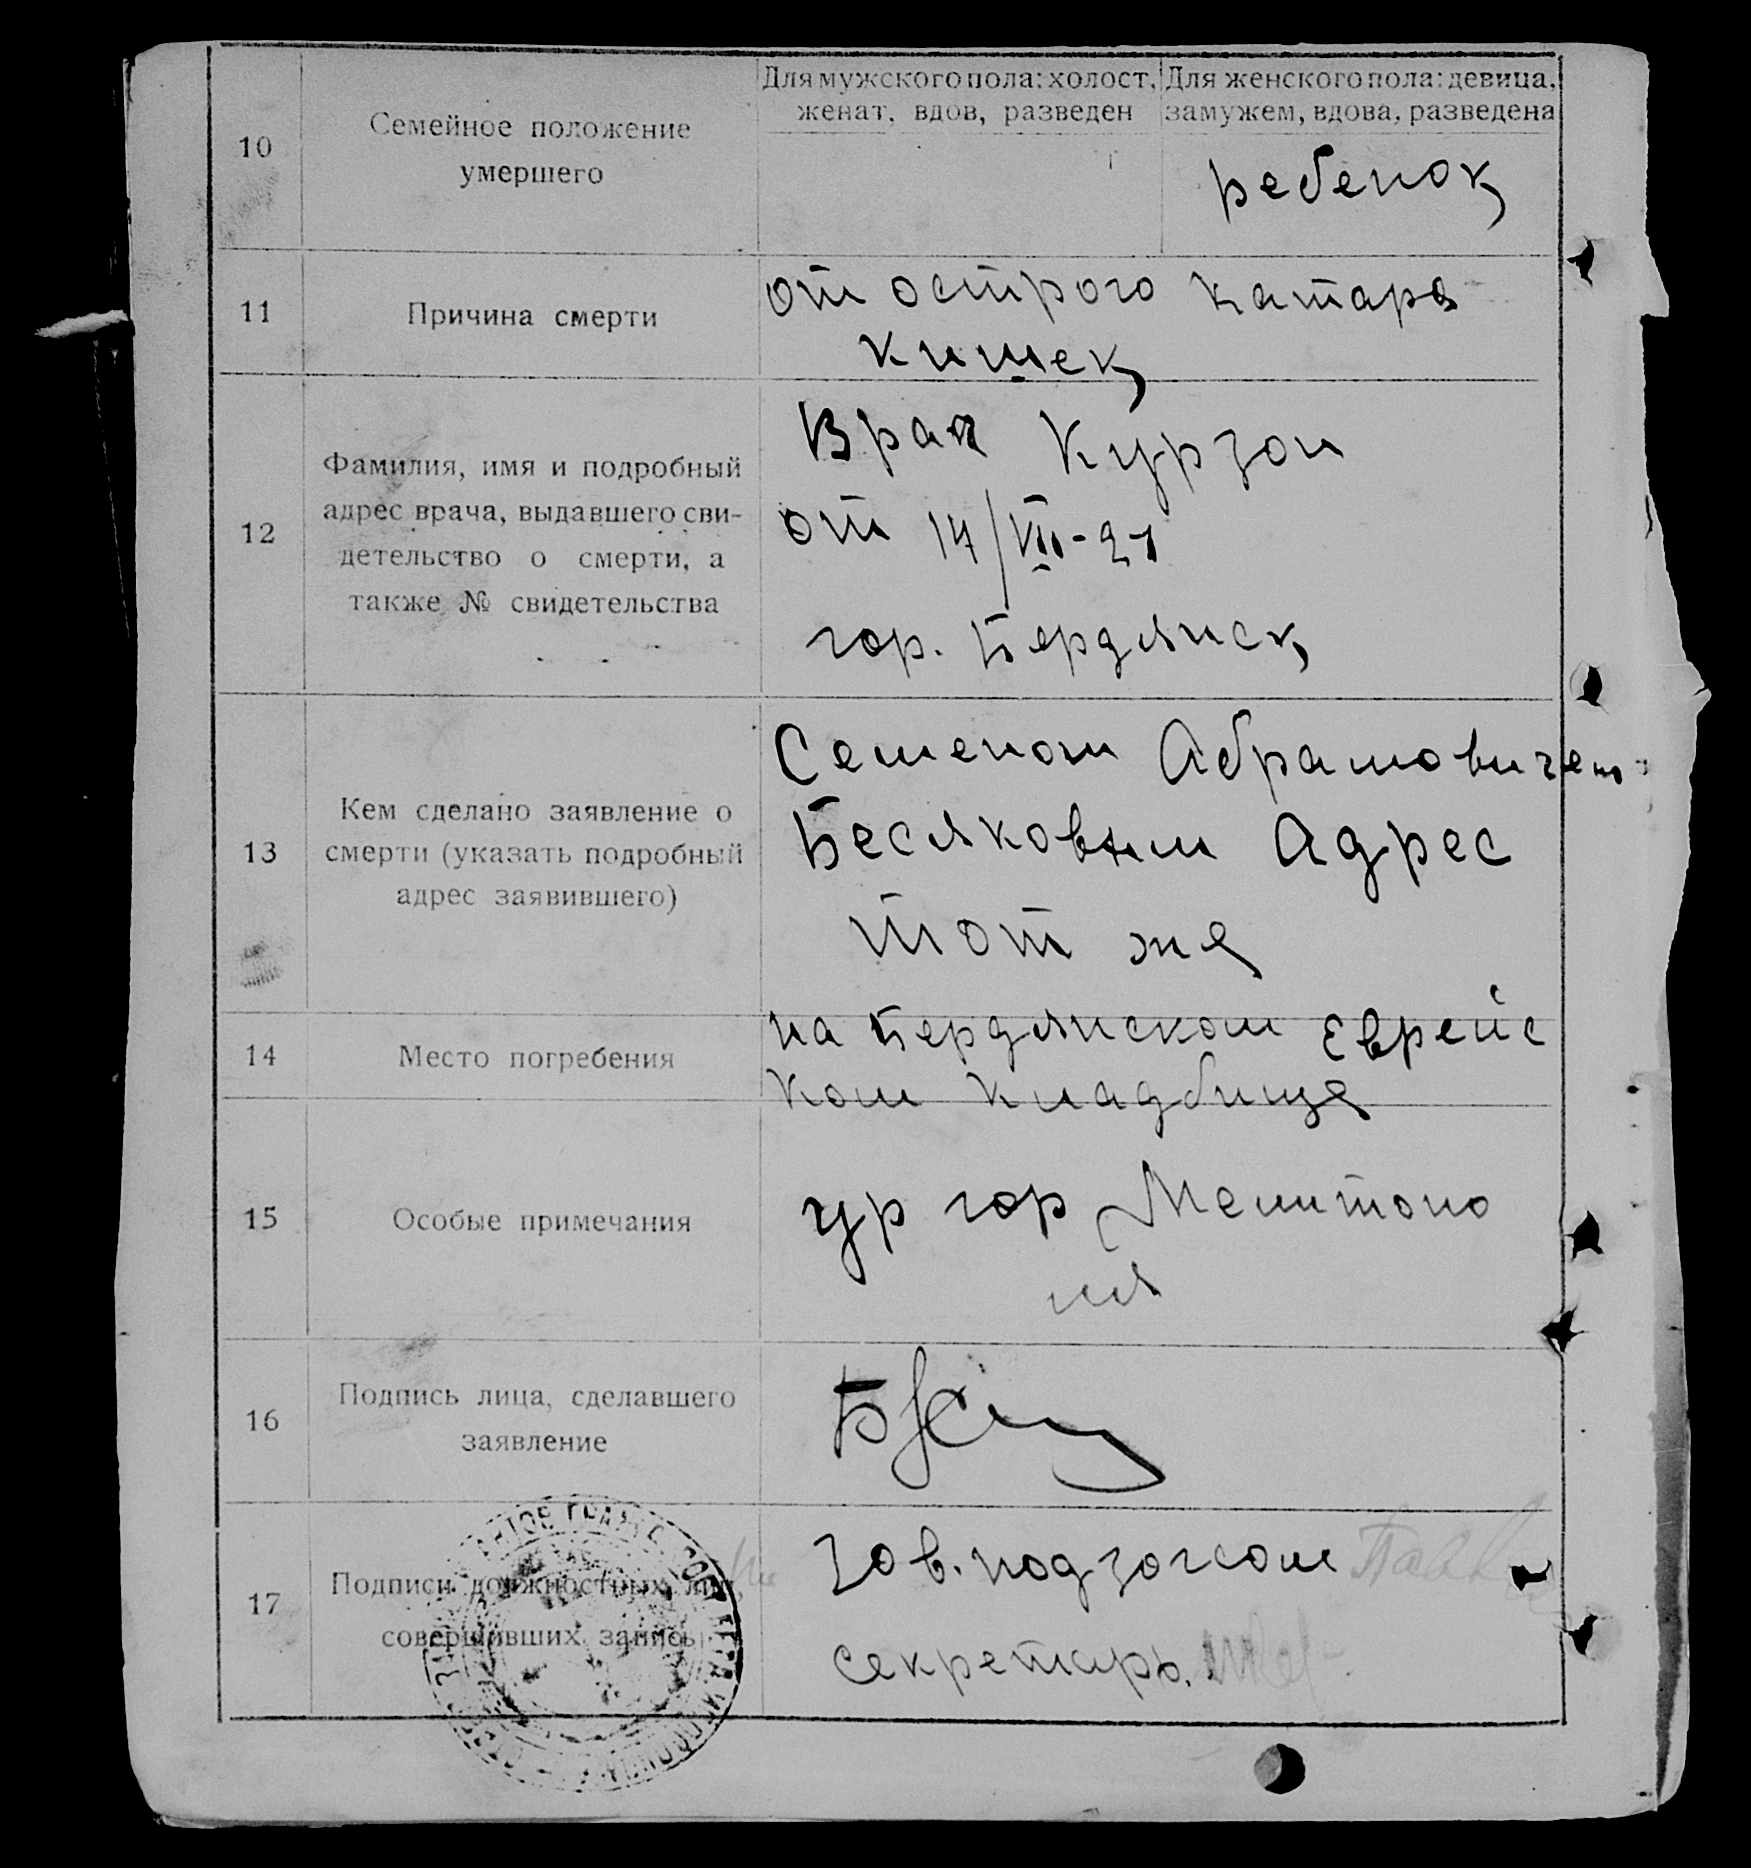 10
Семейное положение
умершего
Для мужского пола: холост,
женат, вдов, разведен
Для женского пола: девица,
замужем, вдова, разведена
ребенок
11
Причина смерти
от острого катара
кишек
12
Фамилия, имя и подробный
адрес врача, выдавшего сви-
детельство о смерти, а
также № свидетельства
Врач Курзон
от 14/VII-21
гор. Бердянск
13
Кем сделано заявление о
смерти (указать подробный
адрес заявившего)
Семеном Абрамовичем
Бесяковым Адрес
тот же
14
Место погребения
на Бердянском Еврейс
ком кладбище
15
Особые примечания
ур гор Мелитопо
ля
16
Подпись лица, сделавшего
заявление
17
Подписи должностных лиц,
совершивших запись
Зав. подзагсом
секретарь.